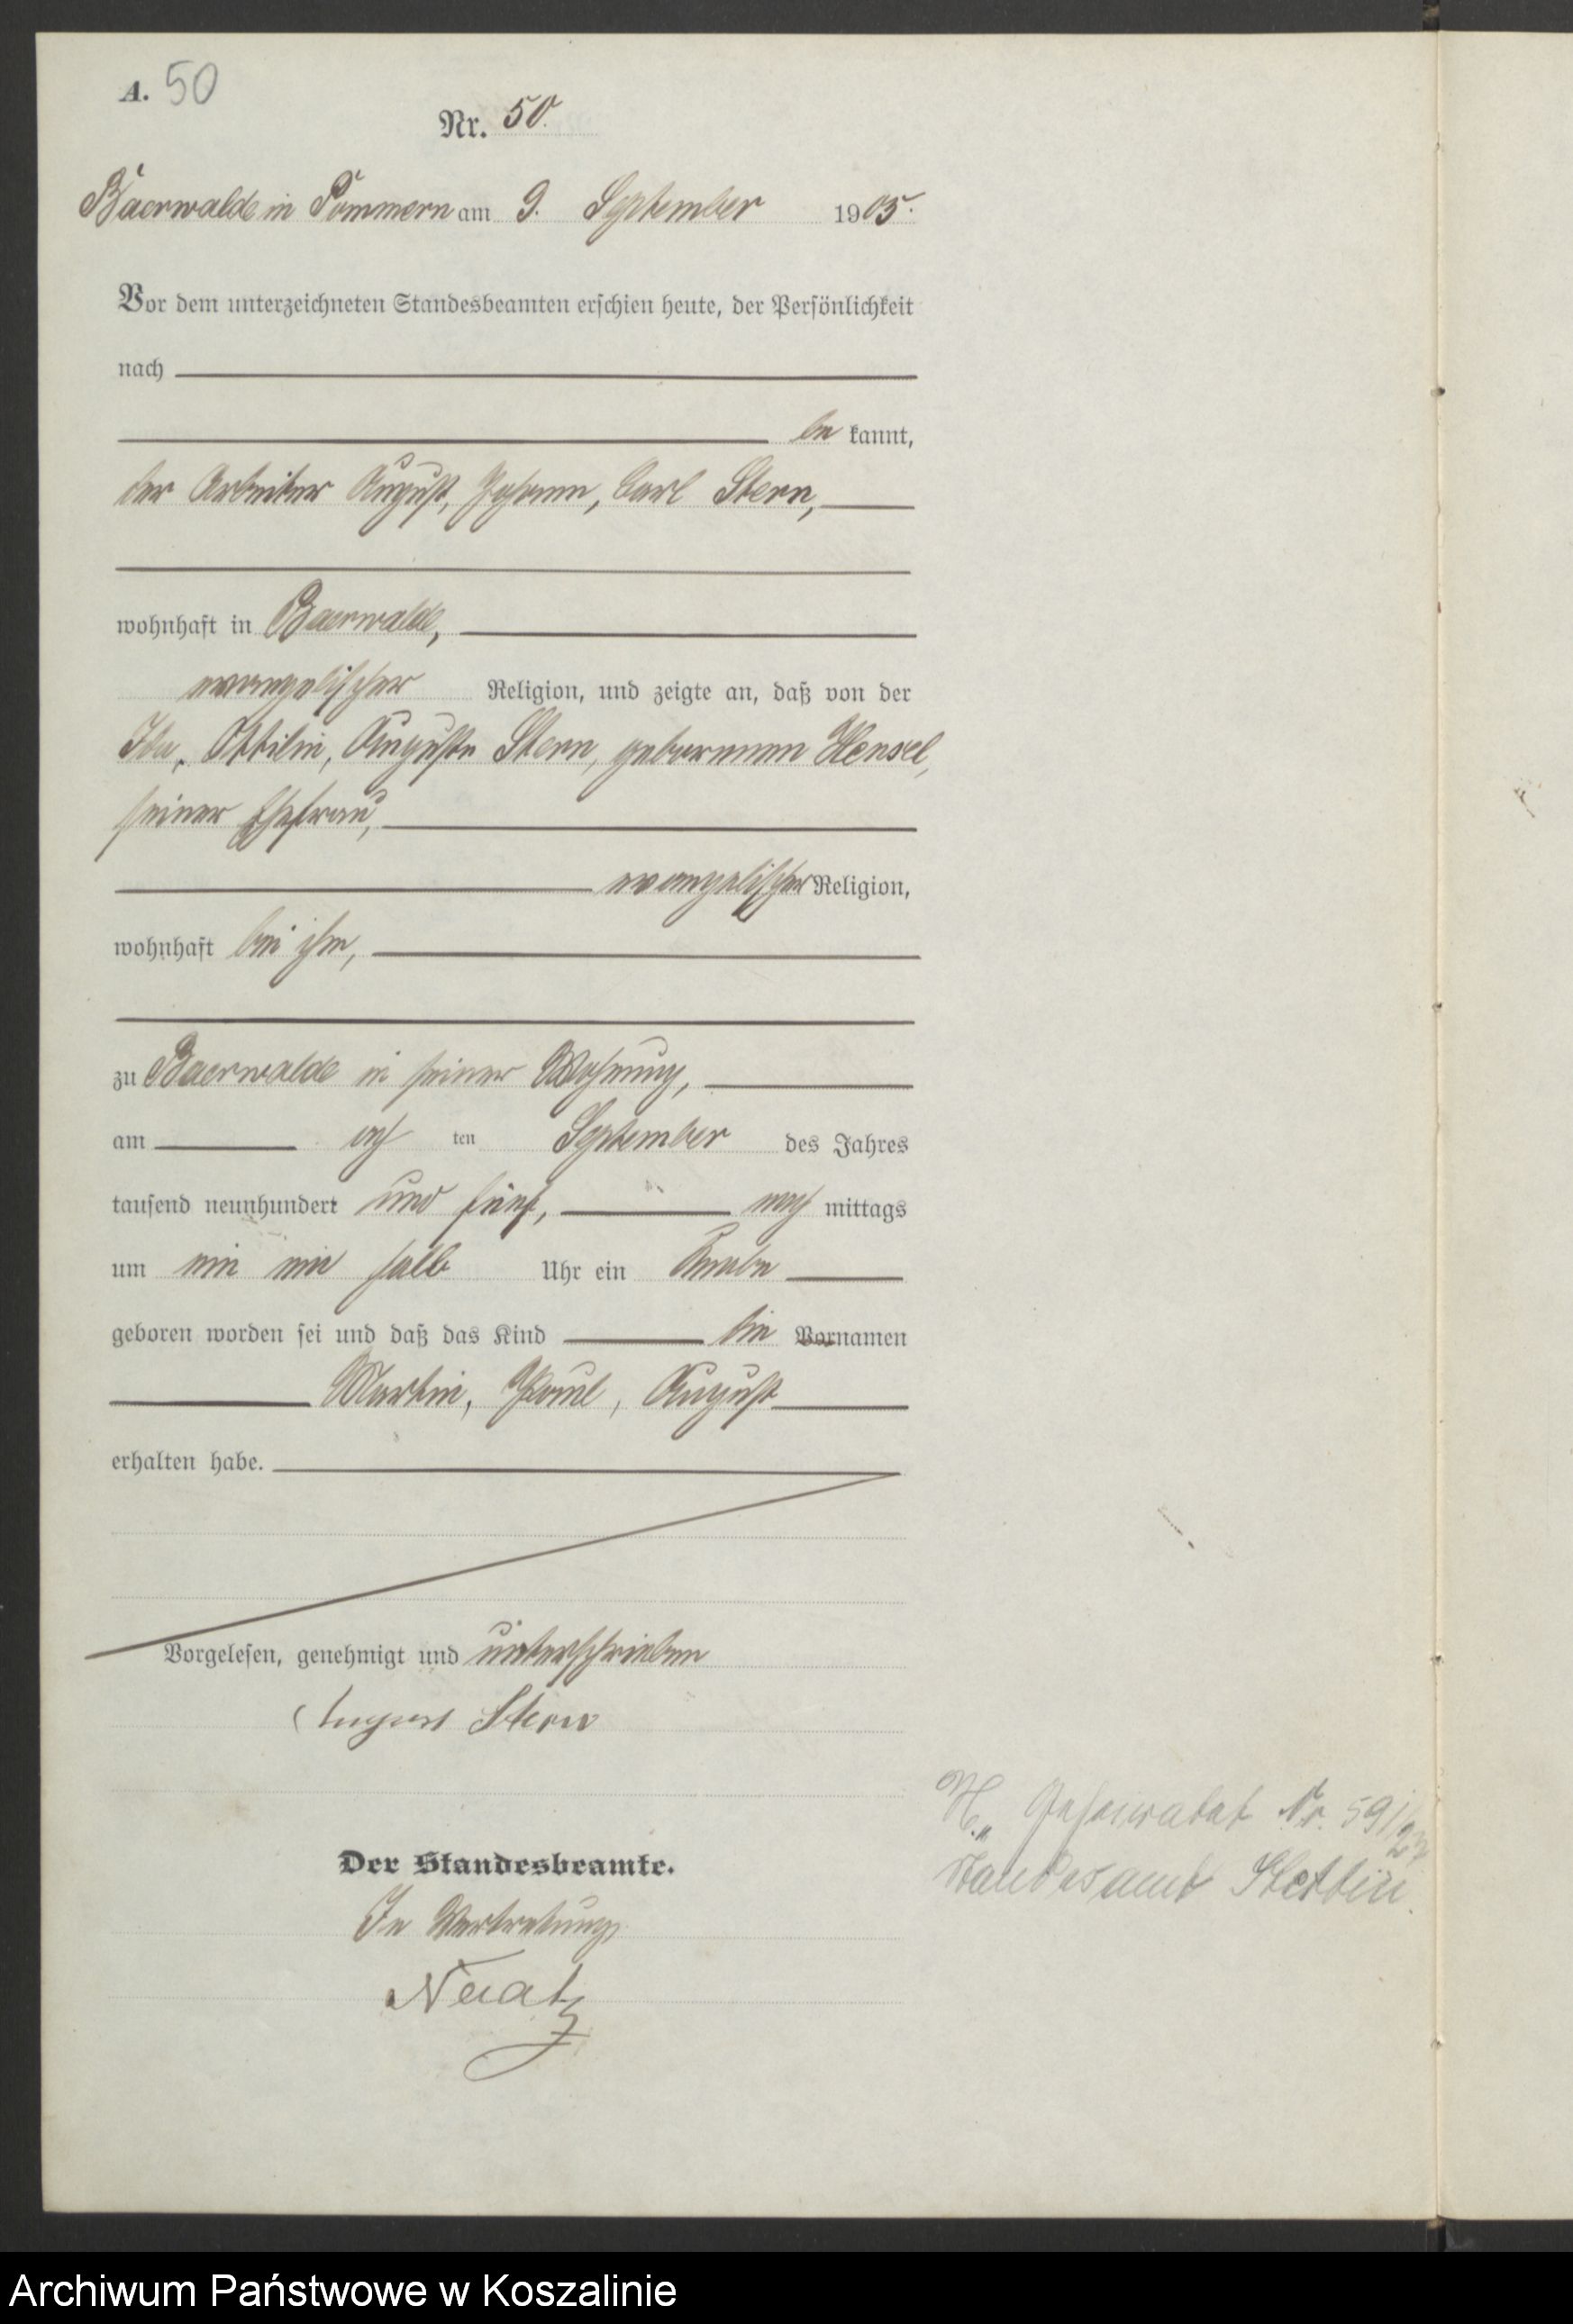 A. 50
Nr. 50.
Baerwalde in Pommern am 9. September 1905.
Vor dem unterzeichneten Standesbeamten erschien heute, der Persönlichkeit
nach
be kannt,
der Arbeiter August, Johann, Carl Stern,
wohnhaft in Baerwalde,
evangelischer Religion, und zeigte an, daß von der
Ida, Ottilie, Auguste Stern, geborenen Hensel,
seiner Ehefrau,
evangelischer Religion,
wohnhaft bei ihm,
zu Baerwalde in seiner Wohnung,
am ach ten September des Jahres
tausend neunhundert und fünf, nach mittags
um ein ein halb Uhr ein Knabe
geboren worden sei und daß das Kind die Vornamen
Martin, Paul, August
erhalten habe.
Vorgelesen, genehmigt und unterschrieben
August Stern
Der Standesbeamte.
In Vertretung
Neratz
Geheiratet Nr. 591/27
Standesamt Stettin.
Archiwum Państwowe w Koszalinie